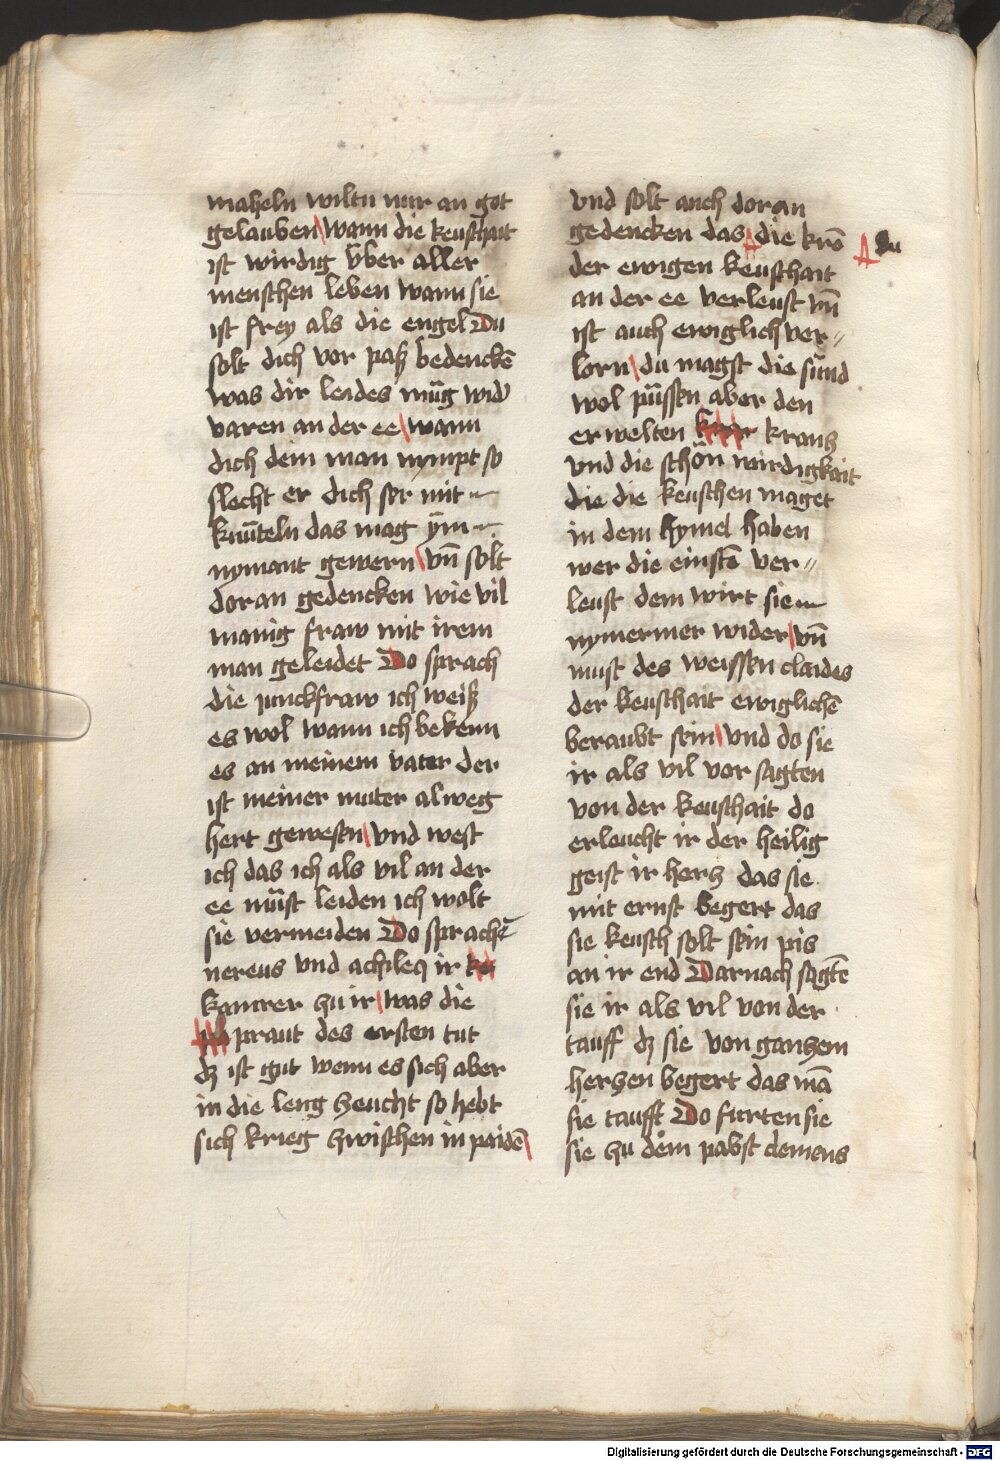 maheln wiltu nur an got
gelauben wann die keuschait
ist wirdig v̈ber aller
menschen leben wann sie
ist frey als die engel Du
solt dich vor paß bedenckē
was dir leides müg wid
varen an der ee wann
dich dem man nympt so
slecht er dich ser mit
knütteln das mag ym
nymant gewern vn̄ solt
doran gedencken wie vil
manig fraw mit irem
man geleidet Do sprach
die junckfraw ich weiß
es wol wann ich bekenn
es an meinem vater der
ist meiner muter alweg
hert gewesen vnd west
ich das ich als vil an der
ee müst leiden ich wolt
sie vermeiden Do sprach
nereus vnd achileq ir
kamrer zu ir was die
praut des ersten tut
dz ist gut wenn es sich aber
in die leng zeucht so hebt
sich krieg zwischen in paidē
vnd solt auch doran
gedencken das die krō
du
der ewigen keuschait
an der ee verleust vn̄
ist auch ewiglich ver⸗
lorn du magst die sünd
wol püssen aber den
erwelten kranz
vnd die schön wirdigkait
die die keuschen maget
in dem hymel haben
wer die einstē ver⸗
leust dem wirt sie
nymermer wider vn̄
must des weissen claides
der keuschait ewiglichē
beraubt sein vnd do sie
ir als vil vor sagten
von der keuschait do
erleucht ir der heilig
geist ir herz das sie
mit ernst begert das
sie keusch solt sein pis
an ir end Darnach sagtē
sie ir als vil von der
tauff dz sie von ganzem
herzen begert das mā
sie taufft Do furten sie
sie zu dem pabst clemens
Digitalisierung gefördert durch die Deutsche Forschungsgemeinschaft - DFG